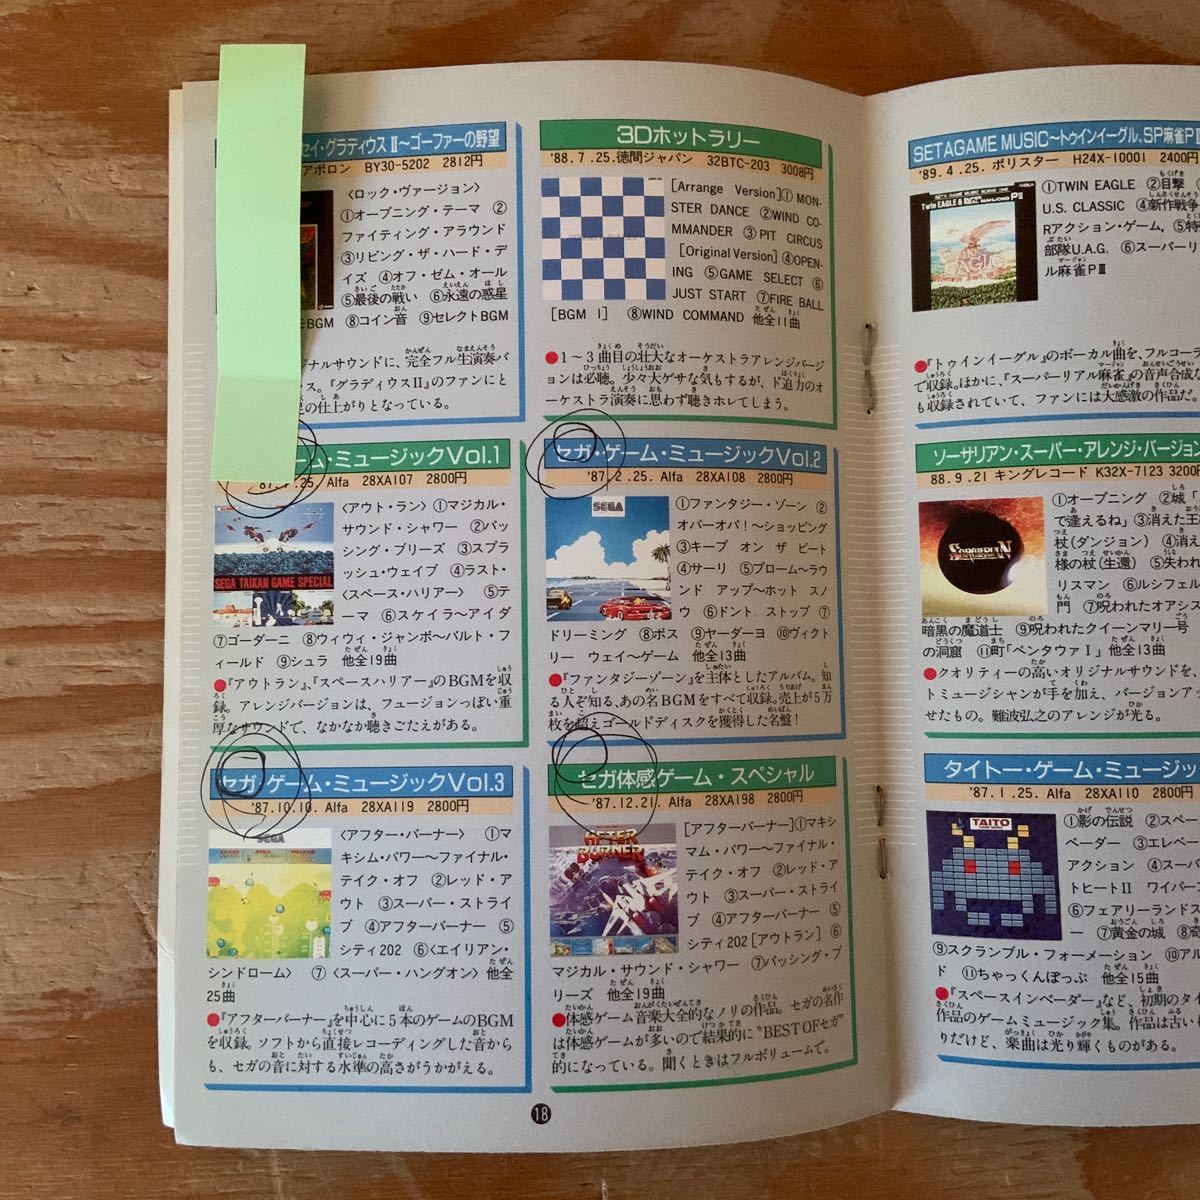 セイ・グラディウスⅡ〜ゴーファーの野望
アポロン BY30-5202 2812円
〈ロック・ヴァージョン〉
①オープニング・テーマ ②
ファイティング・アラウンド
③リビング・ザ・ハード・デ
イズ ④オフ・ゼム・オール
⑤最後の戦い ⑥永遠の惑星
BGM ⑧コイン音 ⑨セレクトBGM
ジナルサウンドに、完全フル生演奏バ
ス。『グラディウスⅡ』のファンにと
足の仕上がりとなっている。
3Dホットラリー
'88.7.25.徳間ジャパン 32BTC-203 3008円
[Arrange Version]① MON-
STER DANCE ②WIND CO-
MMANDER ③PIT CIRCUS
[Original Version]④OPEN-
ING ⑤GAME SELECT ⑥
JUST START ⑦FIRE BALL
[BGM I] ⑧WIND COMMAND 他全11曲
●1〜3曲目の壮大なオーケストラアレンジバージ
ョンは必聴。少々大ゲサな気もするが、ド迫力のオ
ーケストラ演奏に思わず聴きホレてしまう。
ーム・ミュージックVol.1
'87.1.25. Alfa 28XA107 2800円
SEGA TAIKAN GAME SPECIAL
〈アウト・ラン〉①マジカル・
サウンド・シャワー ②パッ
シング・ブリーズ ③スプラ
ッシュ・ウェイブ ④ラスト・
〈スペース・ハリアー〉⑤テ
ーマ ⑥スケイラ〜アイダ
⑦ゴーダーニ ⑧ウィウィ・ジャンボ〜バルト・フ
ィールド ⑨シュラ 他全19曲
●『アウトラン』、『スペースハリアー』のBGMを収
録。アレンジバージョンは、フュージョンっぽい重
厚なサウンドで、なかなか聴きごたえがある。
セガ・ゲーム・ミュージックVol.2
'87.2.25. Alfa 28XA108 2800円
SEGA
①ファンタジー・ゾーン ②
オパーオパ!〜ショッピング
③キープ オン ザ ビート
④サーリ ⑤プローム〜ラウ
ンド アップ〜ホット スノ
ウ ⑥ドント ストップ ⑦
ドリーミング ⑧ボス ⑨ヤーダーヨ ⑩ヴィクト
リー ウェイ〜ゲーム 他全13曲
●『ファンタジーゾーン』を主体としたアルバム。知
る人ぞ知る、あの名BGMをすべて収録。売上が5万
枚を超えゴールドディスクを獲得した名盤!
セガ・ゲーム・ミュージックVol.3
'87.10.10. Alfa 28XA119 2800円
SEGA
〈アフター・バーナー〉 ①マ
キシム・パワー〜ファイナル・
テイク・オフ ②レッド・ア
ウト ③スーパー・ストライ
ブ ④アフターバーナー ⑤
シティ202 ⑥〈エイリアン・
シンドローム〉 ⑦〈スーパー・ハングオン〉 他全
25曲
●『アフターバーナー』を中心に5本のゲームのBGM
を収録。ソフトから直接レコーディングした音から
も、セガの音に対する水準の高さがうかがえる。
セガ体感ゲーム・スペシャル
'87.12.21. Alfa 28XA198 2800円
AFTER BURNER
[アフターバーナー]①マキシ
マム・パワー〜ファイナル・
テイク・オフ ②レッド・ア
ウト ③スーパー・ストライ
ブ ④アフターバーナー ⑤
シティ202 [アウトラン] ⑥
マジカル・サウンド・シャワー ⑦パッシング・ブ
リーズ 他全19曲
●体感ゲーム音楽大全的なノリの作品。セガの名作
は体感ゲームが多いので結果的に"BEST OFセガ"
的になっている。聞くときはフルボリュームで。
18
SETAGAME MUSIC〜トゥインイーグル、SP麻雀PⅡ
'89.4.25. ポリスター H24X-10001 2400円
Twin EAGLE
①TWIN EAGLE ②目撃
U.S. CLASSIC ④新作戦争
Rアクション・ゲーム, ⑤特
部隊U.A.G. ⑥スーパーリ
ル麻雀PⅢ
●『トゥインイーグル』のボーカル曲を、フルコーラ
で収録。ほかに、『スーパーリアル麻雀』の音声合成な
も収録されていて、ファンには大感激の作品だ。
ソーサリアン・スーパー・アレンジ・バージョン
88.9.21 キングレコード K32X-7123 3200円
SORCERIAN
①オープニング ②城「
で逢えるね」③消えた王
杖(ダンジョン) ④消え
様の杖(生還) ⑤失われ
リスマン ⑥ルシフェル
門 ⑦呪われたオアシス
暗黒の魔道士 ⑨呪われたクイーンマリー号
の洞窟 ⑪町「ペンタウァⅠ」他全13曲
●クオリティーの高いオリジナルサウンドを、
トミュージシャンが手を加え、バージョンア
せたもの。難波弘之のアレンジが光る。
タイトー・ゲーム・ミュージッ
'87.1.25. Alfa 28XA110 2800円
TAITO
①影の伝説 ②スペー
ベーダー ③エレベー
アクション ④スーパ
トヒートⅡ ワイバー
⑥フェアリーランドス
ー ⑦黄金の城 ⑧奇
⑨スクランブル・フォーメーション ⑩アル
ド ⑪ちゃっくんぽっぷ 他全15曲
●『スペースインベーダー』など、初期のタイ
作品のゲームミュージック集。作品は古い
りだけど、楽曲は光り輝くものがある。